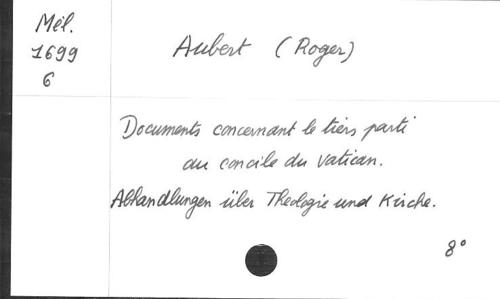 Mél.
1699
6
Aubert (Roger)
Documents concernant le tiers parti
au concile du Vatican.
Abhandlungen über Theologie und Kirche.
8°